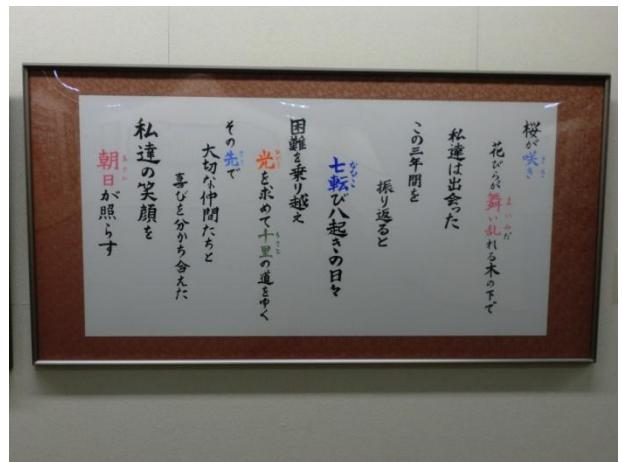 桜が咲き
花びらが舞い乱れる木の下で
私達は出会った
この三年間を
振り返ると
七転び八起きの日々
困難を乗り越え
光を求めて十里の道をゆく
その先で
大切な仲間たちと
喜びを分かち合えた
私達の笑顔を
朝日が照らす